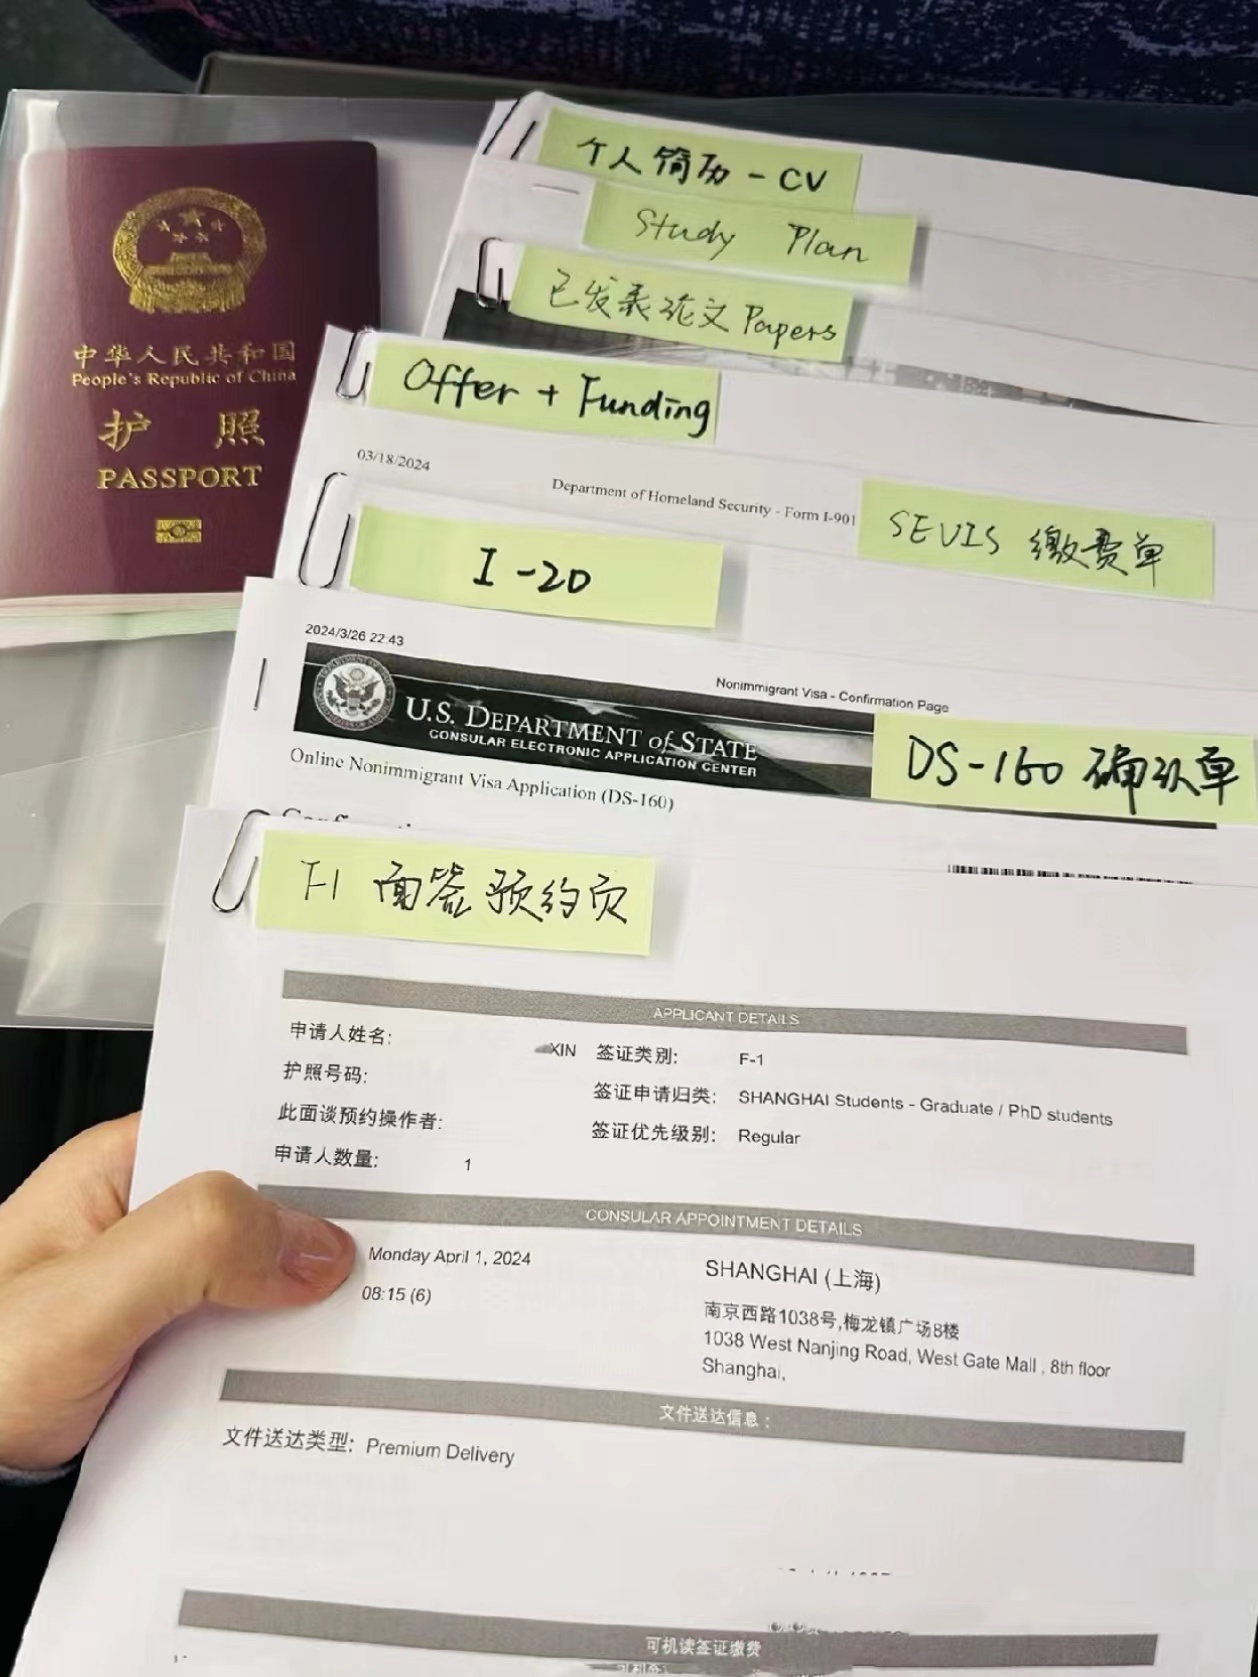 中华人民共和国
People's Republic of China
护照
PASSPORT
个人简历 - CV
Study Plan
已发表论文 Papers
Offer + Funding
03/18/2024
Department of Homeland Security - Form I-901
SEVIS 缴费单
I-20
2024/3/26 22:43
Nonimmigrant Visa - Confirmation Page
U.S. DEPARTMENT of STATE
CONSULAR ELECTRONIC APPLICATION CENTER
DS-160 确认单
Online Nonimmigrant Visa Application (DS-160)
F-1 面签预约页
APPLICANT DETAILS
申请人姓名: XIN 签证类别: F-1
护照号码: 签证申请归类: SHANGHAI Students - Graduate / PhD students
此面谈预约操作者: 签证优先级别: Regular
申请人数量: 1
CONSULAR APPOINTMENT DETAILS
Monday April 1, 2024
08:15 (6)
SHANGHAI (上海)
南京西路1038号,梅龙镇广场8楼
1038 West Nanjing Road, West Gate Mall , 8th floor
Shanghai,
文件送达信息:
文件送达类型: Premium Delivery
可机读签证缴费